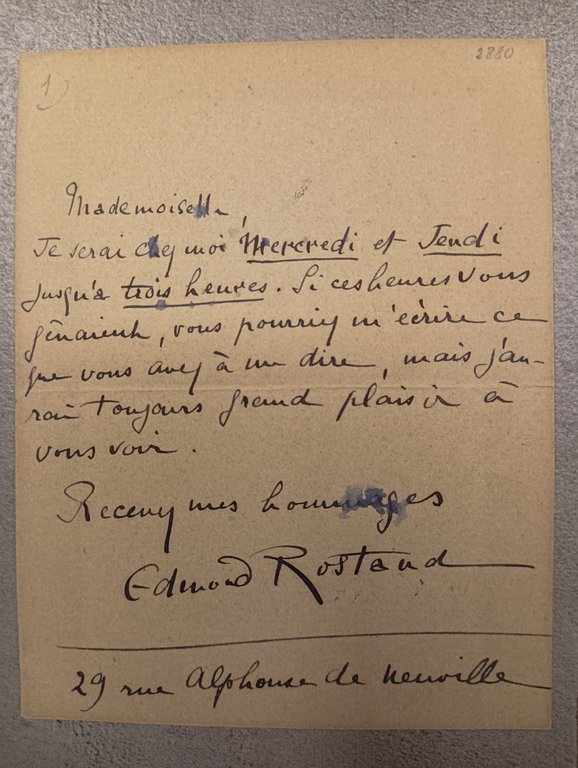 1)
2880
Mademoiselle,
Je serai chez moi Mercredi et Jeudi
jusqu'à trois heures. Si ces heures vous
gênaient, vous pourriez m'écrire ce
que vous avez à me dire, mais j'au-
rai toujours grand plaisir à
vous voir.
Recevez mes hommages
Edmond Rostand
29 rue Alphonse de Neuville